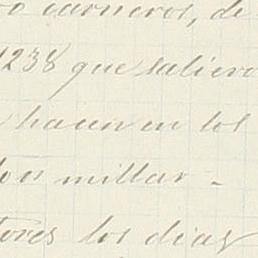 carneros, de
1238 que saliero
hacen en los
millar -
tores los dias